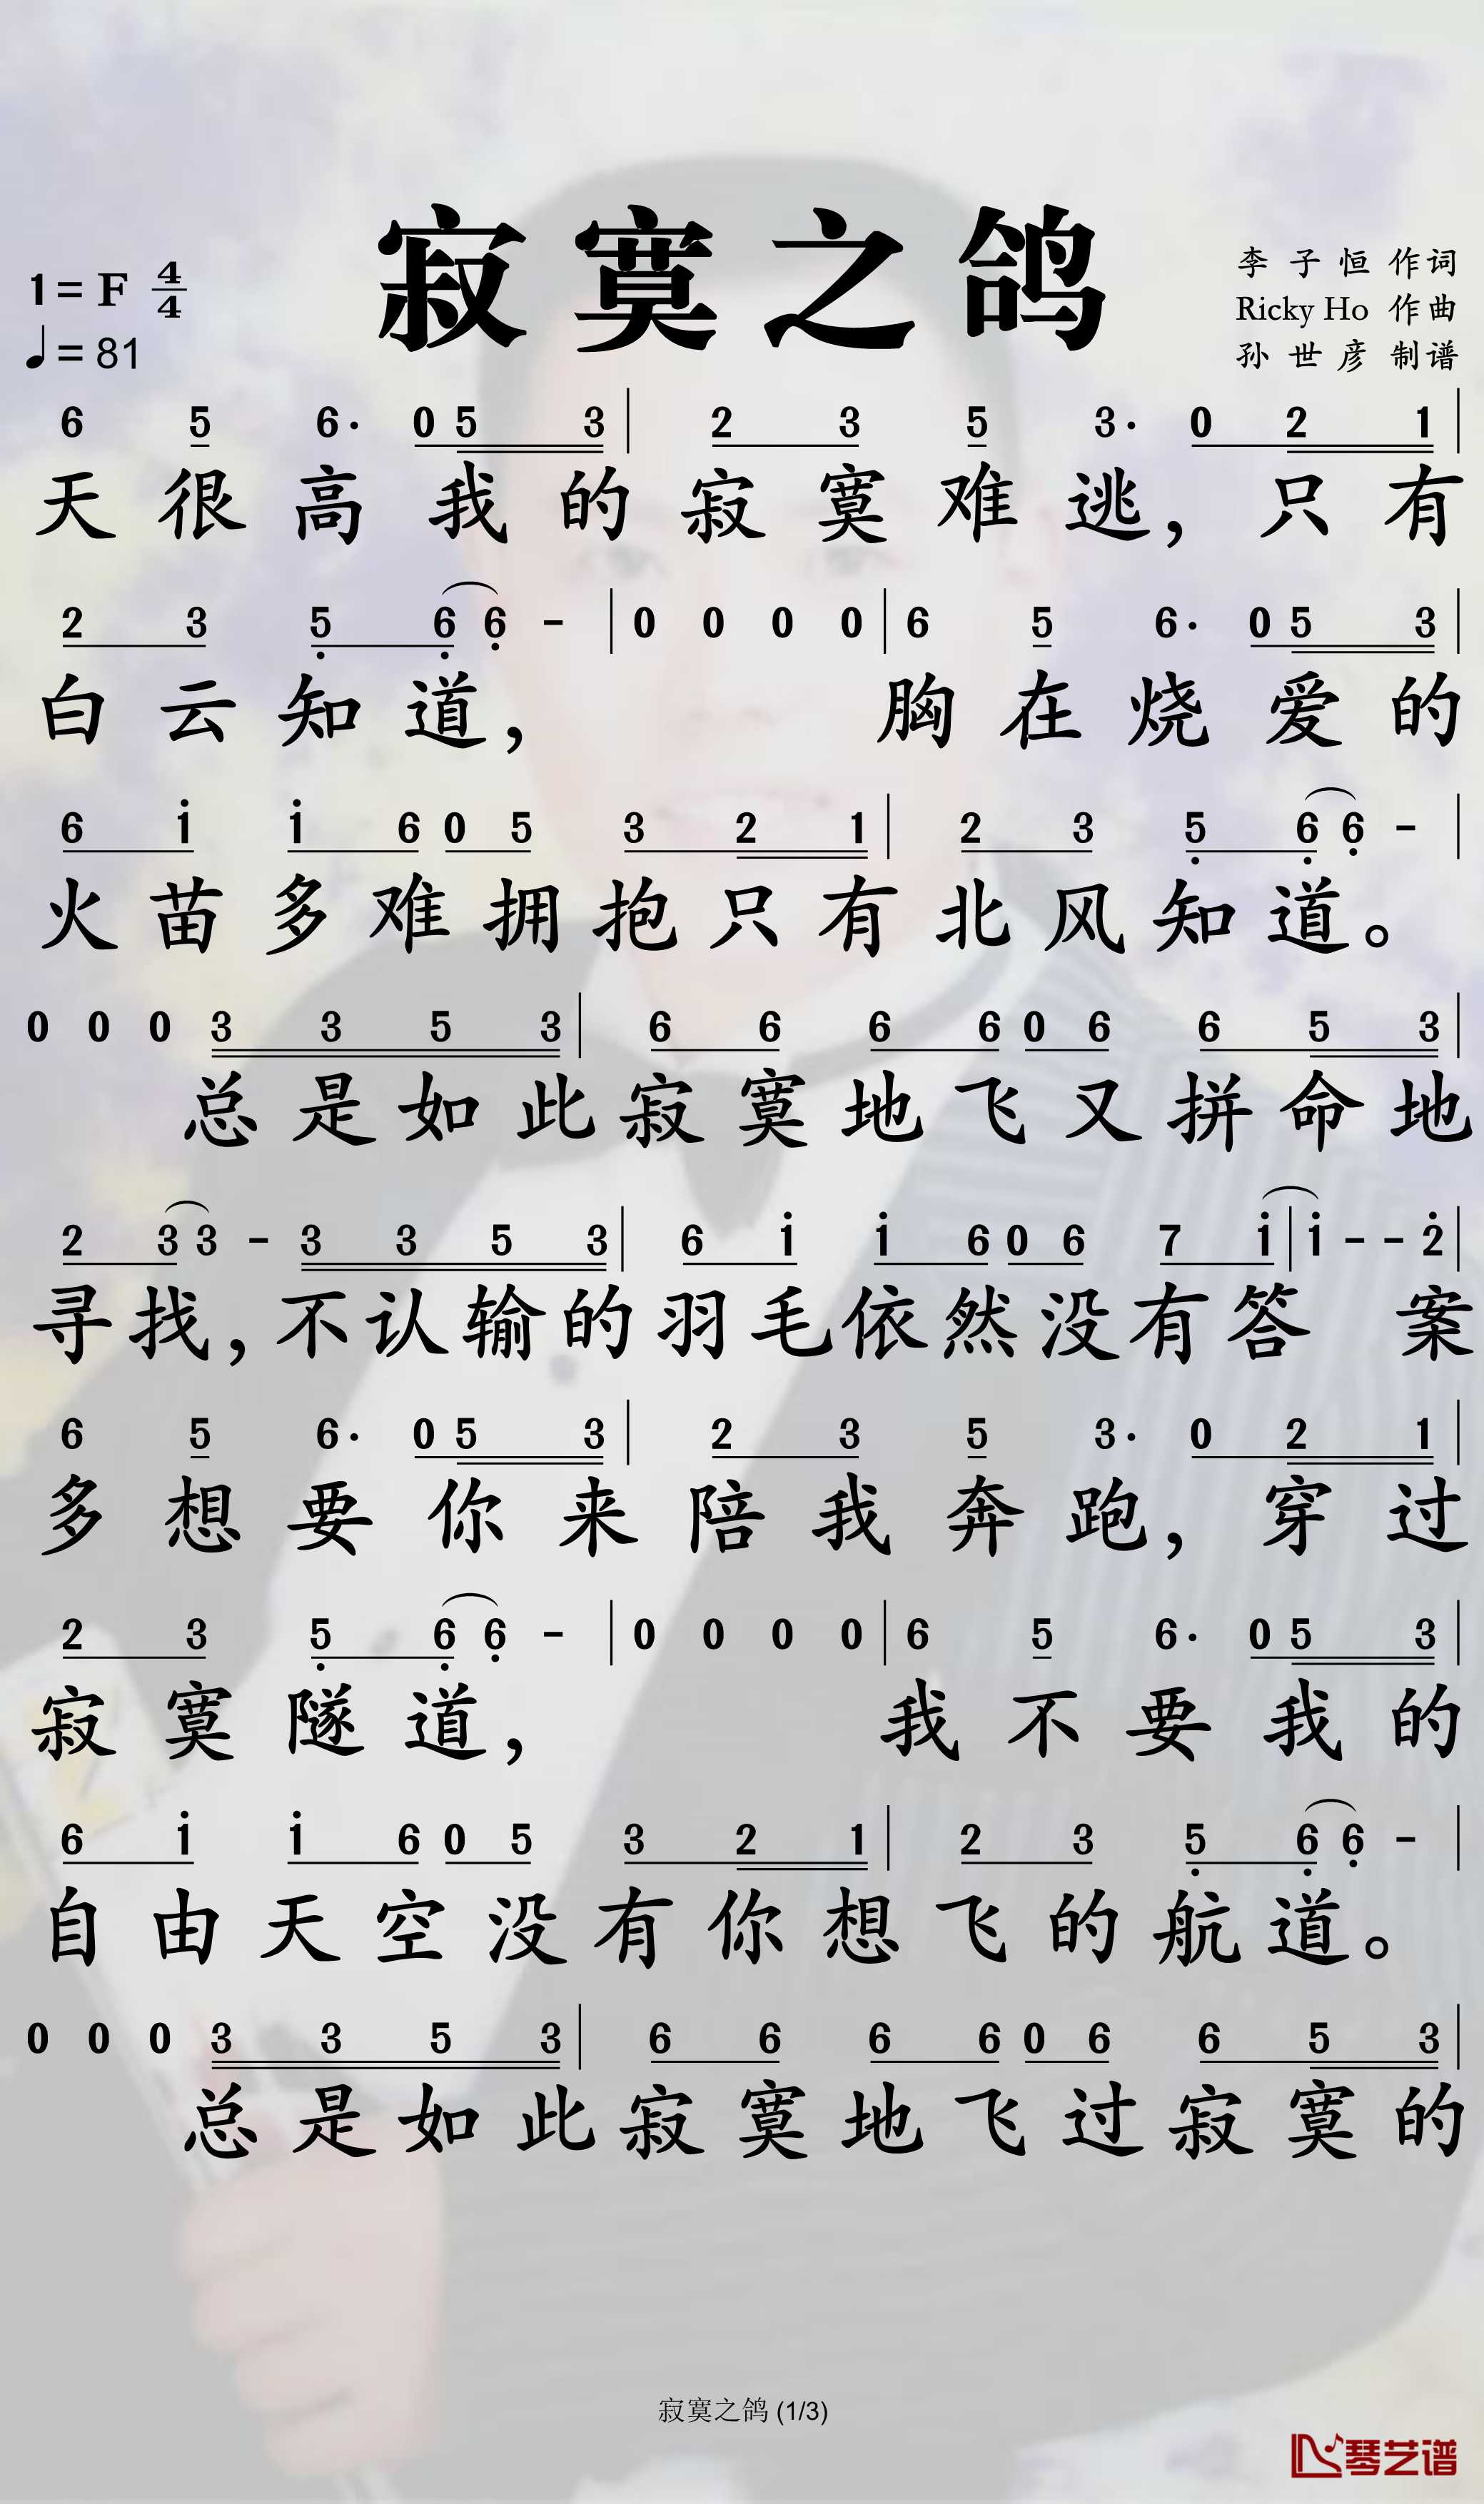 寂寞之鸽
1=F 4/4
♩=81
李子恒 作词
Ricky Ho 作曲
孙世彦 制谱
6 5 6· 0 5 3 | 2 3 5 3· 0 2 1 |
天很高我的寂寞难逃，只有
2 3 5̣ 6̣ 6̣ - | 0 0 0 0 | 6 5 6· 0 5 3 |
白云知道， 胸在烧爱的
6 i i 6 0 5 3 2 1 | 2 3 5̣ 6̣ 6̣ - |
火苗多难拥抱只有北风知道。
0 0 0 3 3 5 3 | 6 6 6 6 0 6 6 5 3 |
总是如此寂寞地飞又拼命地
2 3 3 - 3 3 5 3 | 6 i i 6 0 6 7 i | i - - 2̇ |
寻找，不认输的羽毛依然没有答 案
6 5 6· 0 5 3 | 2 3 5 3· 0 2 1 |
多想要你来陪我奔跑，穿过
2 3 5̣ 6̣ 6̣ - | 0 0 0 0 | 6 5 6· 0 5 3 |
寂寞隧道， 我不要我的
6 i i 6 0 5 3 2 1 | 2 3 5̣ 6̣ 6̣ - |
自由天空没有你想飞的航道。
0 0 0 3 3 5 3 | 6 6 6 6 0 6 6 5 3 |
总是如此寂寞地飞过寂寞的
寂寞之鸽 (1/3)
琴艺谱